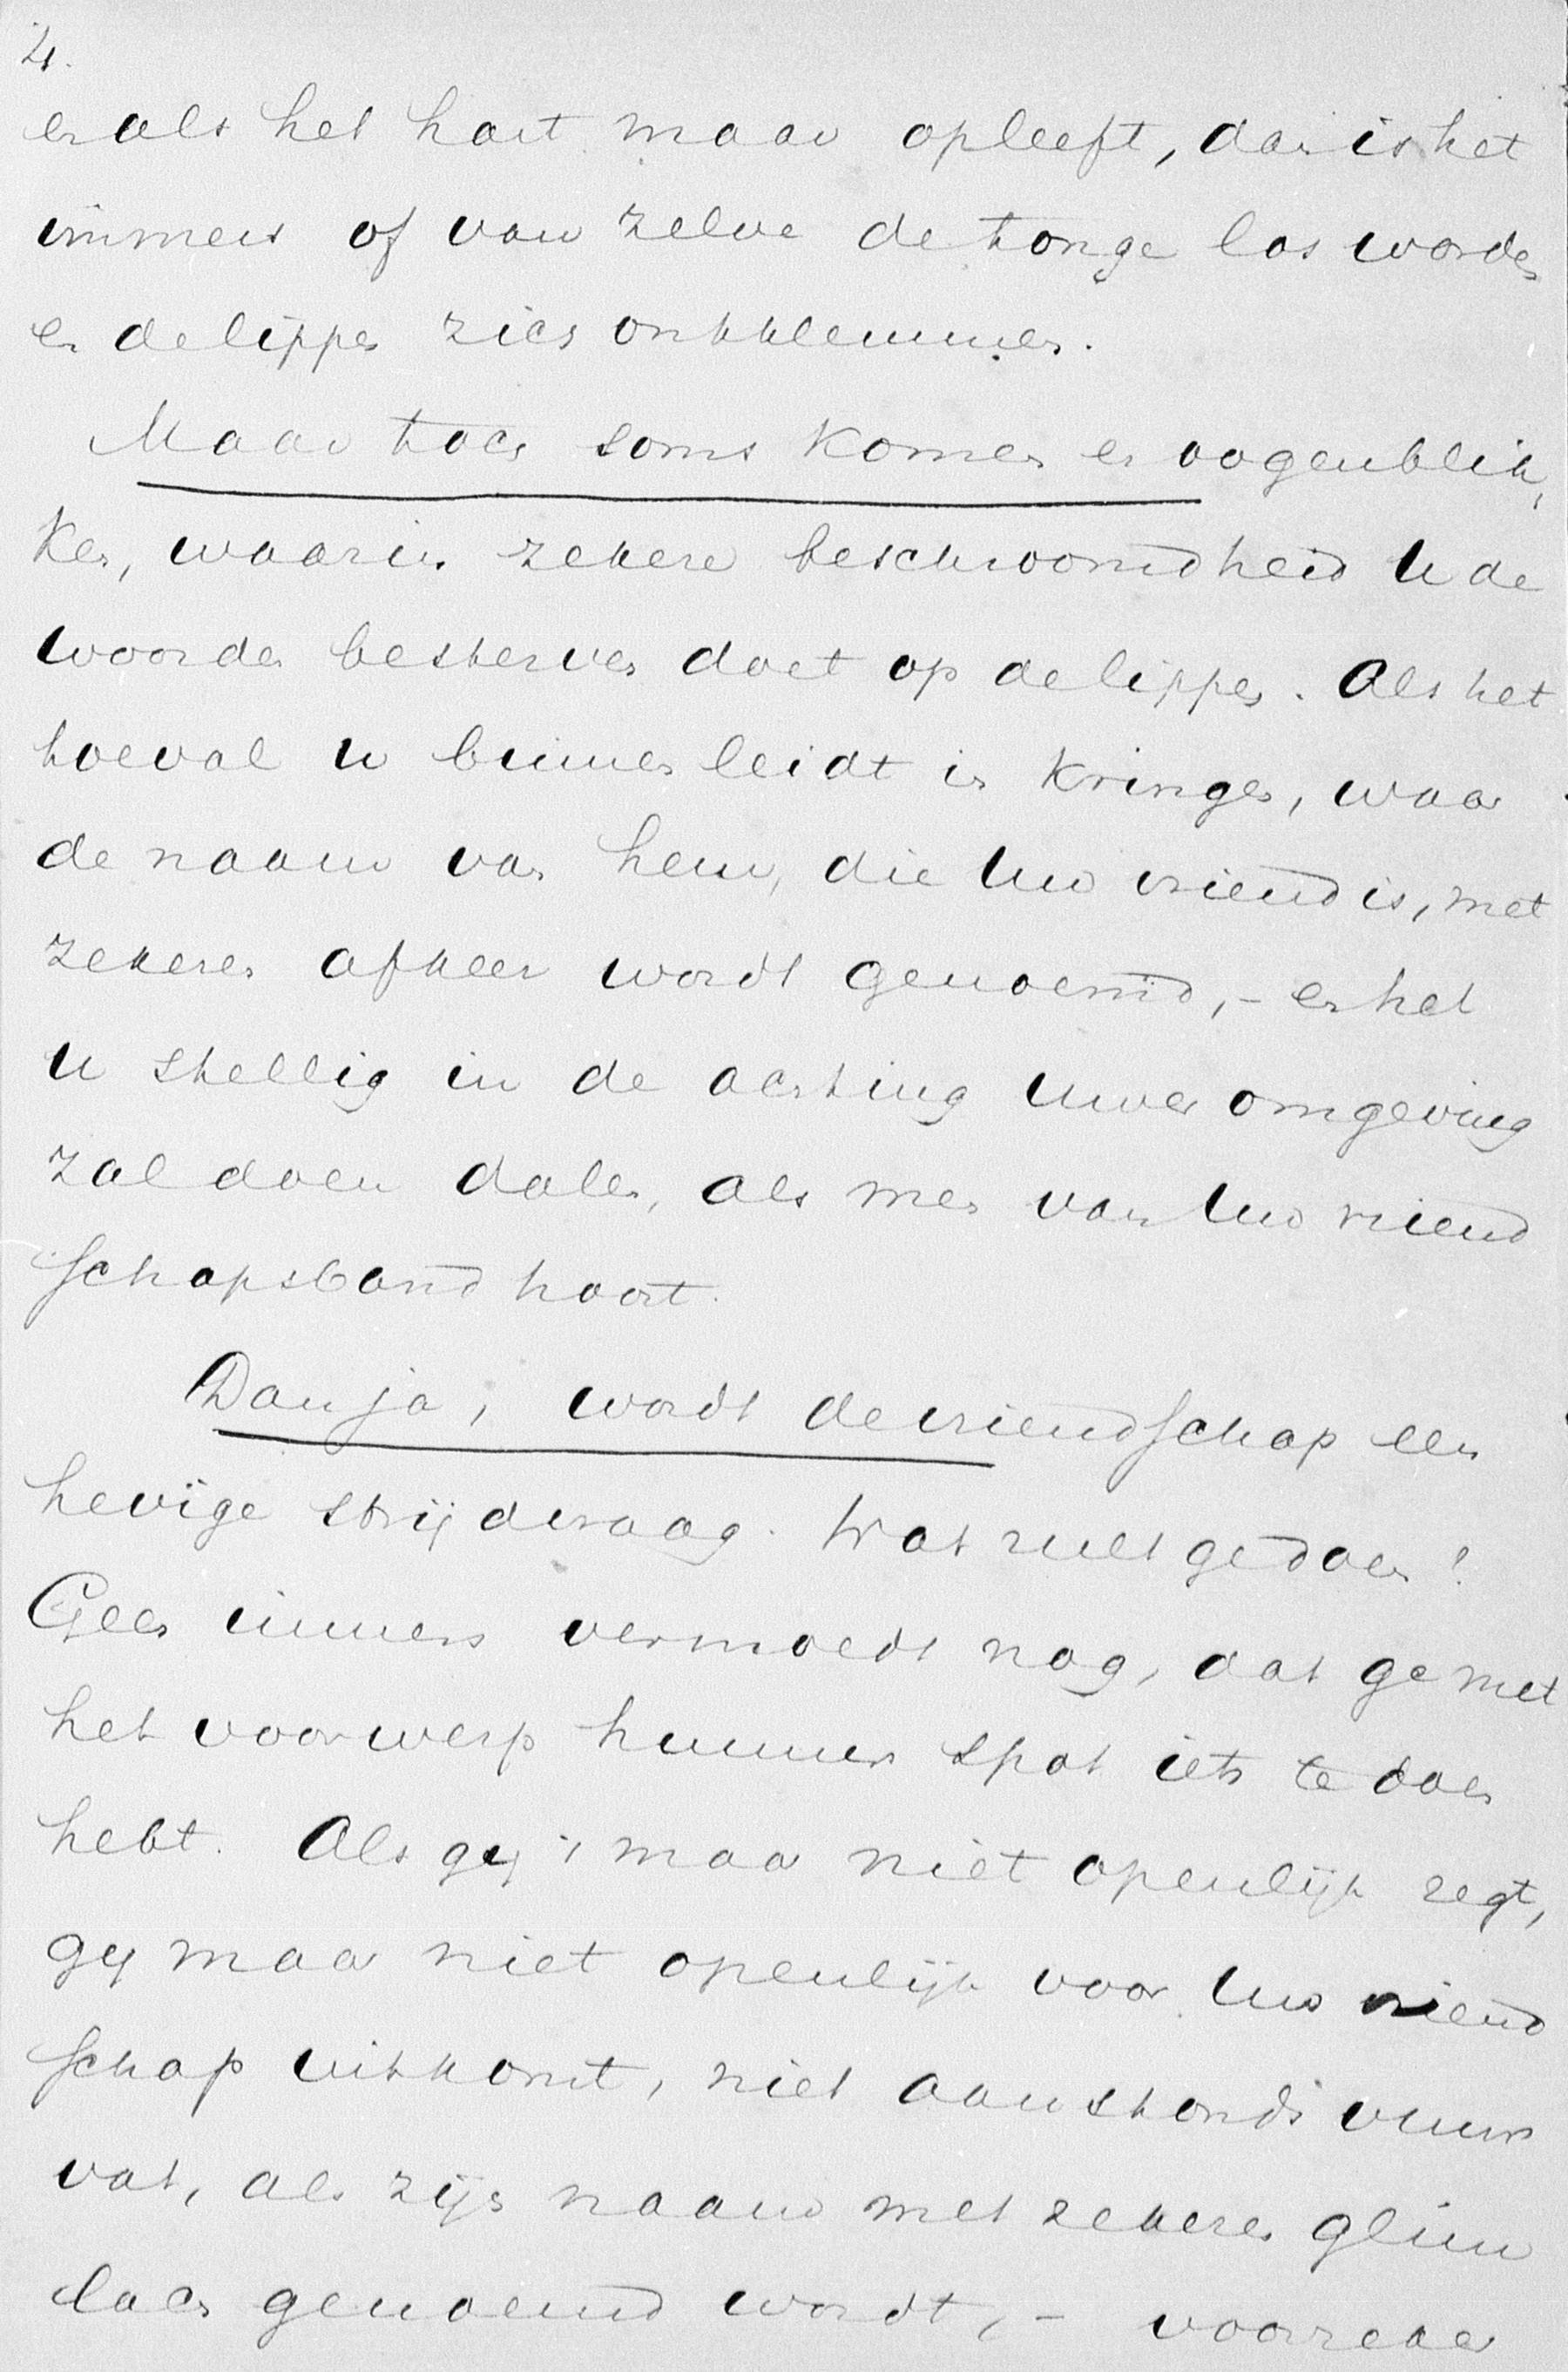 4.
en als het hart maar opleeft, dan is het
immers of van zelve de tonge los worde,
en de lippen zich ontklemmen.
Maar toch soms komen er oogenblik,
ken, waarin zekere beschroomdheid U de
woorden besterven doet op de lippen. Als het
toeval U binnen leidt in kringen, waar
de naam van hem, die Uw vriend is, met
zekeren afkeer wordt genoemd, – en het
U stellig in de achting Uwer omgeving
zal doen dalen, als men van Uw vriend
schapsband hoort.
Dan ja, wordt de vriendschap een
hevige strijdvraag. Wat zult ge doen!
Geen immers vermoedt nog, dat ge met
het voorwerp hunner spot iets te doen
hebt. Als gij 't maar niet openlijk zegt,
gij maar niet openlijk voor Uw vriend
schap uitkomt, niet aanstonds vuur
vat, als zijn naam met zekeren glim
lach genoemd wordt, – voorzeker